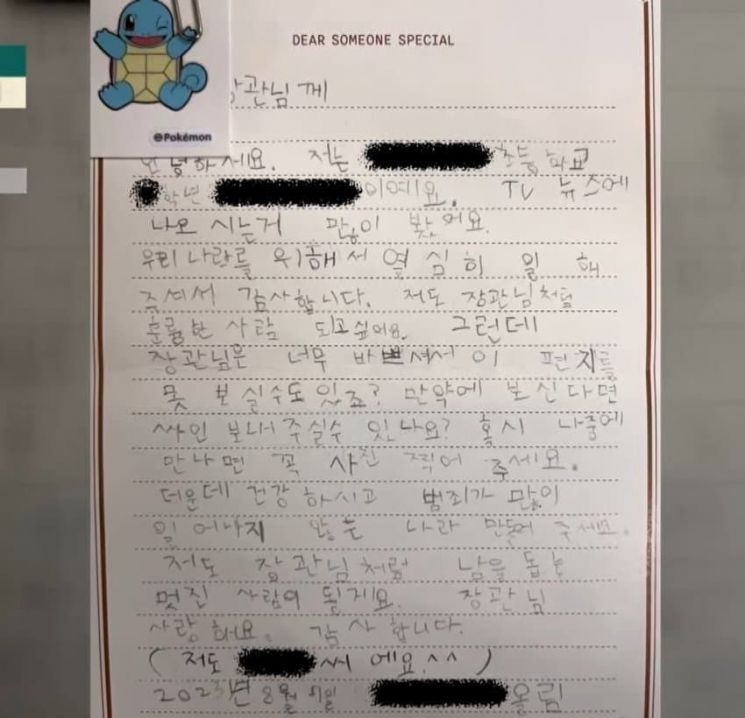 DEAR SOMEONE SPECIAL
©Pokémon
장관님께
안녕하세요. 저는 초등학교
학년 이에요. TV 뉴스에
나오시는거 많이 봤어요.
우리나라를 위해서 열심히 일 해
주셔서 감사합니다. 저도 장관님처럼
훌륭한 사람 되고싶어요. 그런데
장관님은 너무 바쁘셔서 이 편지를
못 보실수도 있죠? 만약에 보신다면
싸인 보내주실수 있나요? 혹시 나중에
만나면 꼭 사진 찍어 주세요.
더운데 건강하시고 범죄가 많이
일어나지 않는 나라 만들어 주세요.
저도 장관님처럼 남을 돕는
멋진 사람이 될게요. 장관님
사랑해요. 감사합니다.
(저도 씨에요^^)
2023년 8월 일 올림